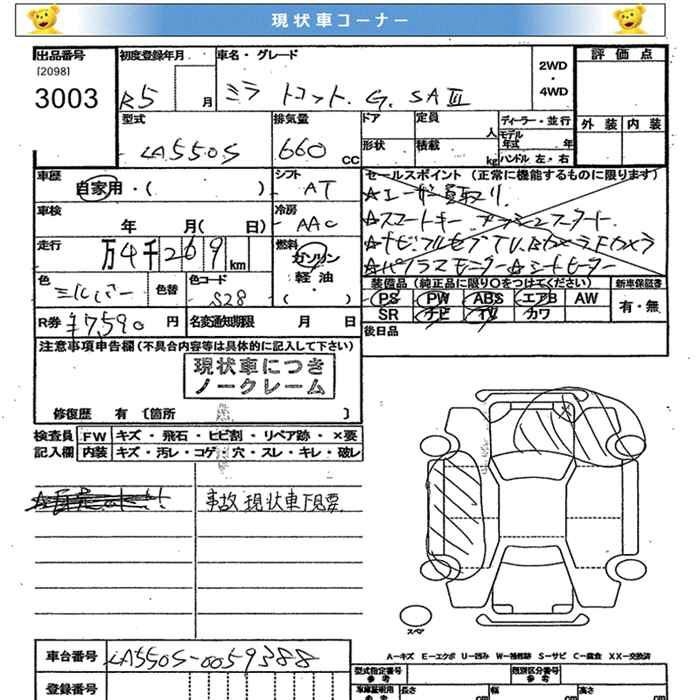 現状車コーナー
出品番号
[2098]
3003
初度登録年月
R5
月
車名・グレード
ミラ トコット. G. SA III
2WD
・
4WD
評 価 点
外 装
内 装
型式
LA550S
排気量
660
CC
ドア
定員
人
形状
積載
kg
ディーラー・並行
モデル
年式 年
ハンドル 左・右
車歴
自家用・( )
シフト
AT
車検
年 月( 日)
冷房
AAC
走行
万4千269
km
燃料
ガソリン
軽 油
色
シルバー
色替
色コード
S28
R券 ¥7,590 円
名変通知期限 月 日
セールスポイント (正常に機能するものに限ります)
☆ユーザー買取り.
☆スマートキー プッシュスタート.
☆ナビ フルセグTV. Bカメラ Fカメラ
☆パノラマモニター☆シートヒーター
装備品 (純正品に限り○をつけてください)
新車保証書
PS PW ABS エアB AW
SR ナビ TV カワ
有・無
後日品
注意事項申告欄 (不具合内容等は具体的に記入して下さい)
現状車につき
ノークレーム
修復歴 有 〔箇所 〕
検査員
記入欄
FW キズ ・ 飛石 ・ ヒビ割 ・ リペア跡 ・ ×要
内装 キズ ・ 汚レ ・ コゲ ・ 穴 ・ スレ ・ キレ ・ 破レ
事故 現状車下見要
スペア
A－キズ E－エクボ U－凹み W－補修跡 S－サビ C－腐食 XX－交換済
車台番号 LA550S-0059388
登録番号
型式指定番号
参考
類別区分番号
参考
車庫証明用
参考
長さ cm
幅 cm
高さ cm